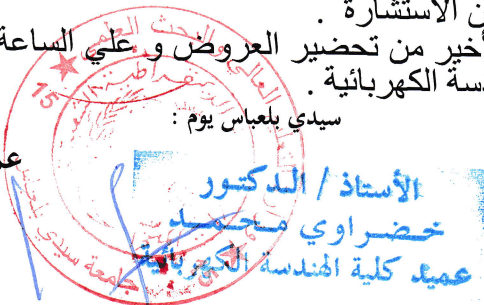 ن الاستشارة .
أخير من تحضير العروض و علي الساعة
دسة الكهربائية .
سيدي بلعباس يوم :
الأستاذ / الدكتور
خضراوي محمد
عميد كلية الهندسة الكهربائية
العالي والبحث العلمي
15
جامعة سيدي بلعباس